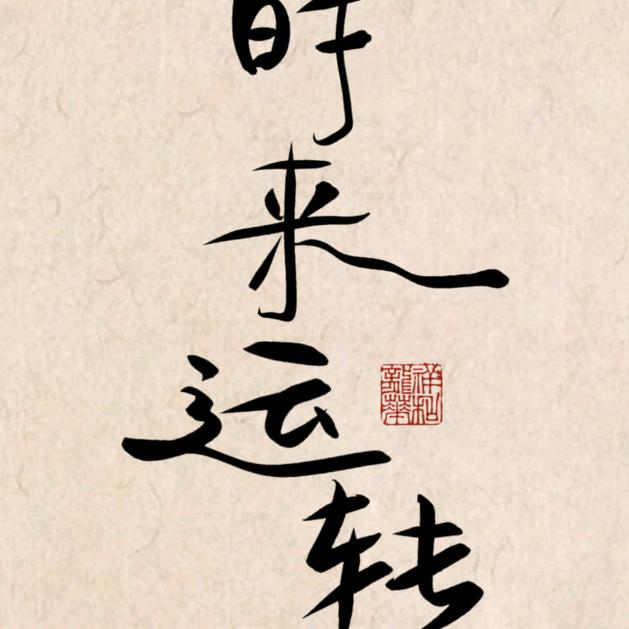 时
来
运
转